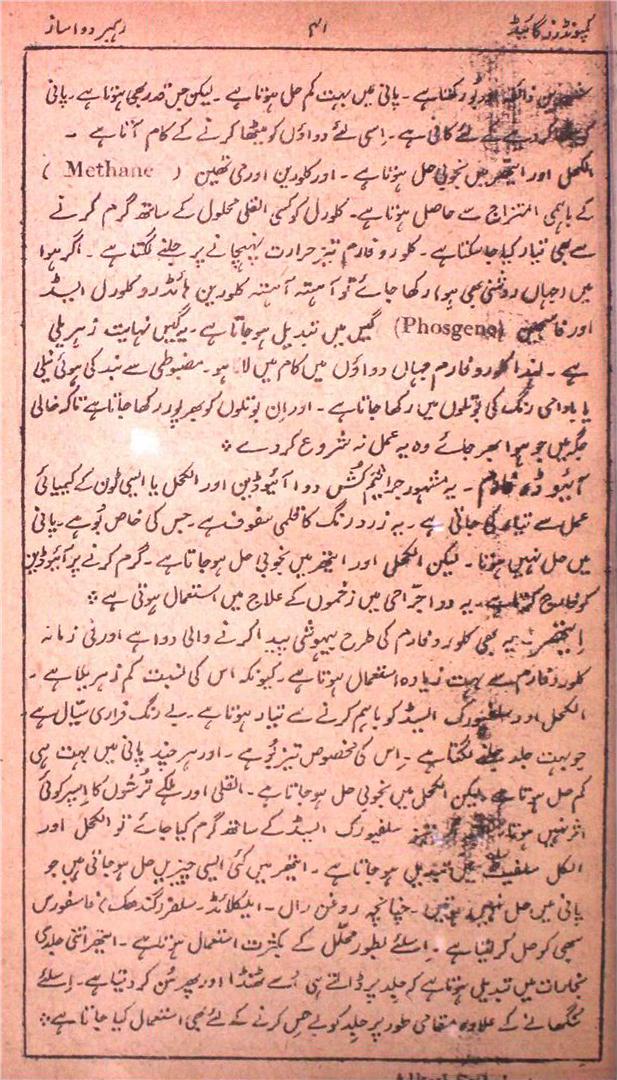 کمپونڈرز گائیڈ ۴۱ رہبر دواساز
ذائقہ اور بُو رکھتا ہے ۔ پانی میں بہت کم حل ہوتا ہے ۔ لیکن جس قدر بھی ہوتا ہے ۔ پانی
کے لئے کافی ہے ۔ اِسی لئے دواؤں کو میٹھا کرنے کے کام آتا ہے ۔
الکحل اور ایتھر میں بخوبی حل ہوتا ہے ۔ اور کلورین اور می تھین ( Methane )
کے باہمی امتزاج سے حاصل ہوتا ہے ۔ کلورل کو کسی القلی محلول کے ساتھ گرم کرنے
سے بھی تیار کیا جا سکتا ہے ۔ کلوروفارم تیز حرارت پہنچانے پر جلنے لگتا ہے ۔ اگر ہوا
میں (جہاں روشنی بھی ہو) رکھا جائے تو آہستہ آہستہ کلورین ہائڈروکلورل ایسڈ
اور فاسجین (Phosgene) گیس میں تبدیل ہو جاتا ہے ۔ یہ گیس نہایت زہریلی
ہے ۔ لہٰذا کلوروفارم جہاں دواؤں میں کام میں لانا ہو ۔ مضبوطی سے بند کی ہوئی نیلی
یا بادامی رنگ کی بوتلوں میں رکھا جاتا ہے ۔ اور اِن بوتلوں کو بھرپور رکھا جاتا ہے تاکہ خالی
جگہ میں جو ہوا بھر جائے وہ یہ عمل نہ شروع کر دے ⁘
آئیوڈو فارم ۔ یہ مشہور جراثیم کُش دوا آئیوڈین اور الکحل یا ایسی ٹون کے کیمیائی
عمل سے تیار کی جاتی ہے ۔ یہ زرد رنگ کا قلمی سفوف ہے ۔ جس کی خاص بُو ہے ۔ پانی
میں حل نہیں ہوتا ۔ لیکن الکحل اور ایتھر میں بخوبی حل ہو جاتا ہے ۔ گرم کرنے پر آئیوڈین
کو خارج کرتا ہے ۔ یہ دوا جرّاحی میں زخموں کے علاج میں استعمال ہوتی ہے ⁘
اِیتھر یہ بھی کلوروفارم کی طرح بیہوشی پیدا کرنے والی دوا ہے اور فی زمانہ
کلوروفارم سے بہت زیادہ استعمال ہوتا ہے ۔ کیونکہ اس کی نسبت کم زہریلا ہے ۔
الکحل اور سلفیورک ایسڈ کو باہم کرنے سے تیار ہوتا ہے ۔ بے رنگ فراری سیّال ہے
جو بہت جلد جلنے لگتا ہے ۔ اِس کی مخصوص تیز بُو ہے ۔ اور ہر چند پانی میں بہت ہی
کم حل ہوتا ہے لیکن الکحل میں بخوبی حل ہو جاتا ہے ۔ القلی اور ہلکے تُرشوں کا اِسپر کوئی
اثر نہیں ہوتا تیز سلفیورک ایسڈ کے ساتھ گرم کیا جائے تو الکحل اور
الکل سلفیٹ میں تبدیل ہو جاتا ہے ۔ ایتھر میں کئی ایسی چیزیں حل ہو جاتی ہیں جو
پانی میں حل نہیں ہوتیں ۔ چنانچہ روغن رال ۔ ایلکلائڈ ۔ سلفر (گندھک) فاسفورس
سبھی کو حل کر لیتا ہے ۔ اِسلئے بطور محلّل کے بکثرت استعمال ہوتا ہے ۔ ایتھر اتنی جلدی
بخارات میں تبدیل ہوتا ہے کہ جلد پر ڈالتے ہی اُسے ٹھنڈا اور پھر سُن کر دیتا ہے ۔ اِسلئے
سُنگھانے کے علاوہ مقامی طور پر جلد کو بے حِس کرنے کے لئے بھی استعمال کیا جاتا ہے ⁘